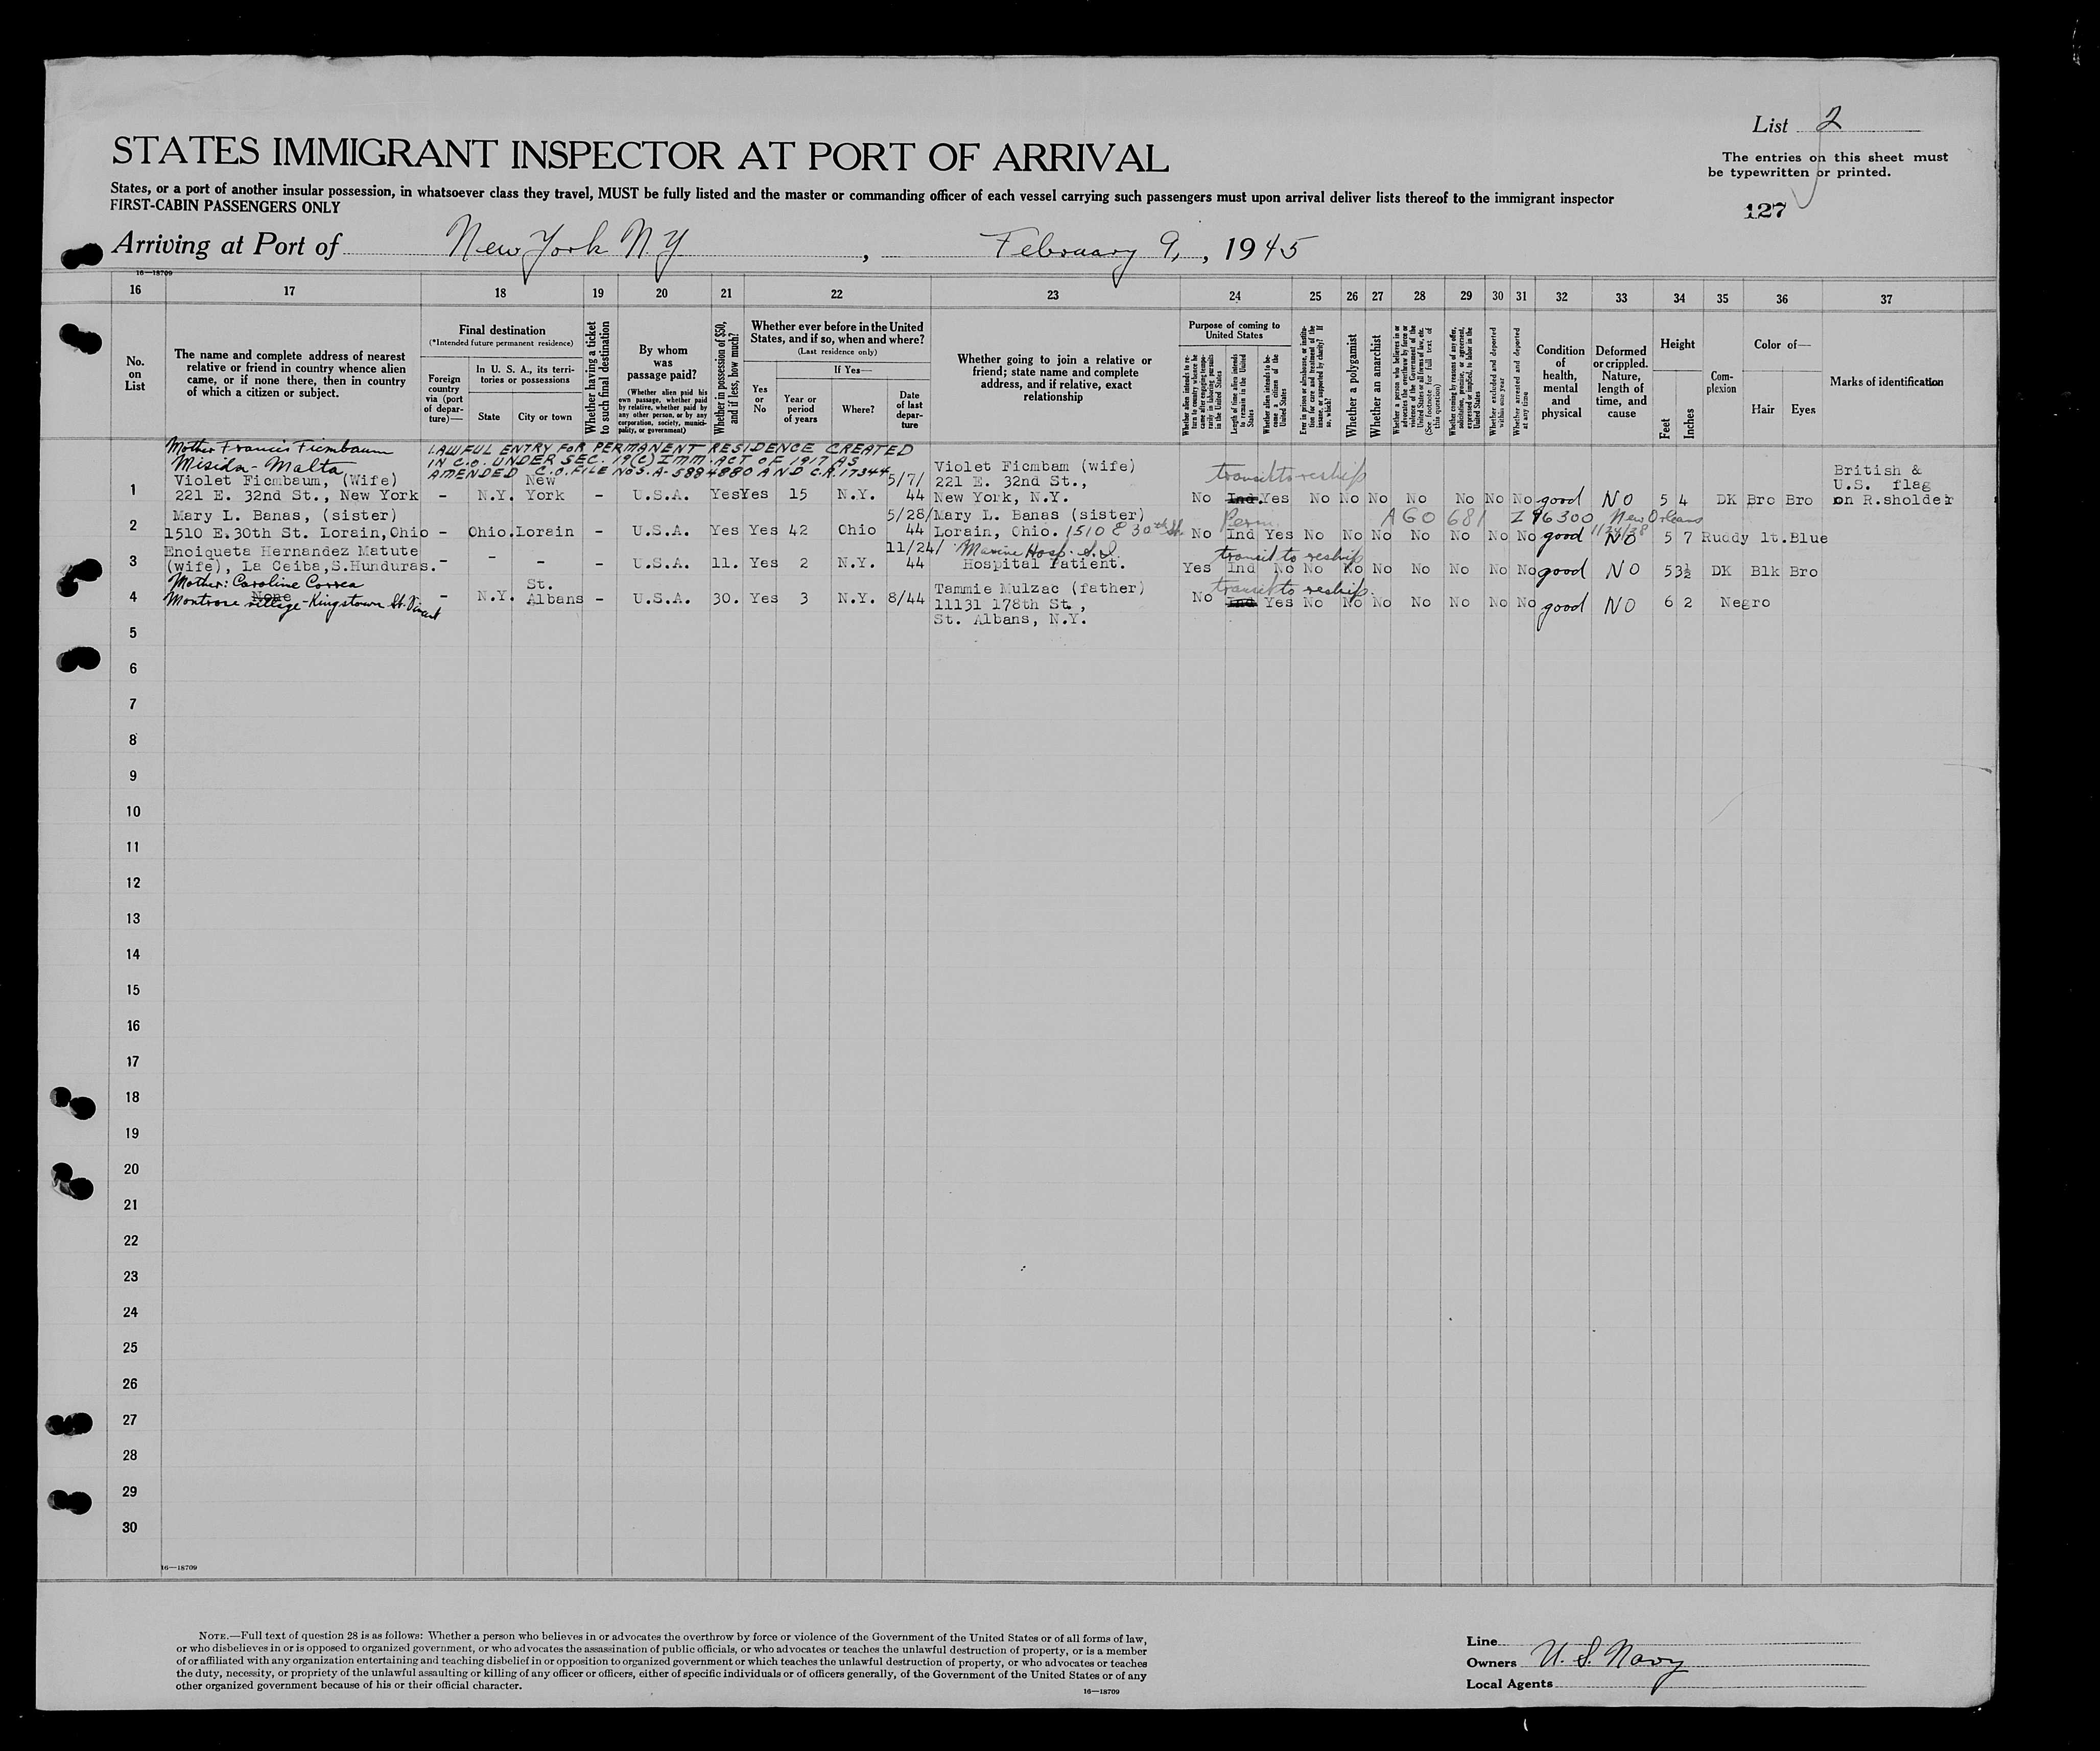 List 2
STATES IMMIGRANT INSPECTOR AT PORT OF ARRIVAL
The entries on this sheet must
be typewritten or printed.
States, or a port of another insular possession, in whatsoever class they travel, MUST be fully listed and the master or commanding officer of each vessel carrying such passengers must upon arrival deliver lists thereof to the immigrant inspector
FIRST-CABIN PASSENGERS ONLY
127
Arriving at Port of New York N.Y , February 9, , 1945
16—18709
16 17 18 19 20 21 22 23 24 25 26 27 28 29 30 31 32 33 34 35 36 37
No. on List
The name and complete address of nearest
relative or friend in country whence alien
came, or if none there, then in country
of which a citizen or subject.
Final destination
(*Intended future permanent residence)
Foreign country via (port of departure)—
In U. S. A., its territories or possessions
State
City or town
Whether having a ticket to such final destination
By whom was passage paid?
(Whether alien paid his own passage, whether paid by relative, whether paid by any other person, or by any corporation, society, municipality, or government)
Whether in possession of $50, and if less, how much?
Whether ever before in the United
States, and if so, when and where?
(Last residence only)
Yes or No
If Yes—
Year or period of years
Where?
Date of last departure
Whether going to join a relative or
friend; state name and complete
address, and if relative, exact
relationship
Purpose of coming to United States
Whether alien intends to return to country whence he came after engaging temporarily in laboring pursuits in the United States
Length of time alien intends to remain in the United States
Whether alien intends to become a citizen of the United States
Ever in prison or almshouse, or institution for care and treatment of the insane, or supported by charity? If so, which?
Whether a polygamist
Whether an anarchist
Whether a person who believes in or advocates the overthrow by force or violence of the Government of the United States or all forms of law, etc. (See footnote for full text of this question)
Whether coming by reasons of any offer, solicitation, promise, or agreement, expressed or implied, to labor in the United States
Whether excluded and deported within one year
Whether arrested and deported at any time
Condition of health, mental and physical
Deformed or crippled. Nature, length of time, and cause
Height
Feet
Inches
Complexion
Color of—
Hair
Eyes
Marks of identification
Mother Francis Ficmbaum
Misida - Malta
LAWFUL ENTRY FOR PERMANENT RESIDENCE CREATED
IN C.O. UNDER SEC. 19(C) IMM. ACT OF 1917 AS
AMENDED C.O. FILE NOS. A-5884880 AND C.R. 17344
1 Violet Ficmbaum, (Wife)
221 E. 32nd St., New York - N.Y. New York - U.S.A. Yes Yes 15 N.Y. 5/7/44
Violet Ficmbam (wife)
221 E. 32nd St.,
New York, N.Y.
transit to reship
No Ind. Yes No No No No No No No good NO 5 4 DK Bro Bro
British &
U.S. flag
on R.sholder
2 Mary L. Banas, (sister)
1510 E.30th St. Lorain,Ohio - Ohio. Lorain - U.S.A. Yes Yes 42 Ohio 5/28/44
Mary L. Banas (sister)
Lorain, Ohio. 1510 E 30th St.
Perm AGO 681 Z 96300 New Orleans
No Ind Yes No No No No No No No good NO 5 7 Ruddy lt.Blue
3 Enoiqueta Hernandez Matute
(wife), La Ceiba,S.Hunduras. - - - - U.S.A. 11. Yes 2 N.Y. 11/24/44
Marine Hosp. S.I.
Hospital Patient.
transit to reship
Yes Ind No No No No No No No No good NO 5 3½ DK Blk Bro
Mother: Caroline Correa
4 None
Montrose village - Kingstown St. Vincent
- N.Y. St. Albans - U.S.A. 30. Yes 3 N.Y. 8/44
Tammie Mulzac (father)
11131 178th St.,
St. Albans, N.Y.
transit to reship
No Ind. Yes No No No No No No No good NO 6 2 Negro
5
6
7
8
9
10
11
12
13
14
15
16
17
18
19
20
21
22
23
24
25
26
27
28
29
30
16—18709
NOTE.—Full text of question 28 is as follows: Whether a person who believes in or advocates the overthrow by force or violence of the Government of the United States or of all forms of law,
or who disbelieves in or is opposed to organized government, or who advocates the assassination of public officials, or who advocates or teaches the unlawful destruction of property, or is a member
of or affiliated with any organization entertaining and teaching disbelief in or opposition to organized government or which teaches the unlawful destruction of property, or who advocates or teaches
the duty, necessity, or propriety of the unlawful assaulting or killing of any officer or officers, either of specific individuals or of officers generally, of the Government of the United States or of any
other organized government because of his or their official character.
16—18709
Line
Owners U. S. Navy
Local Agents